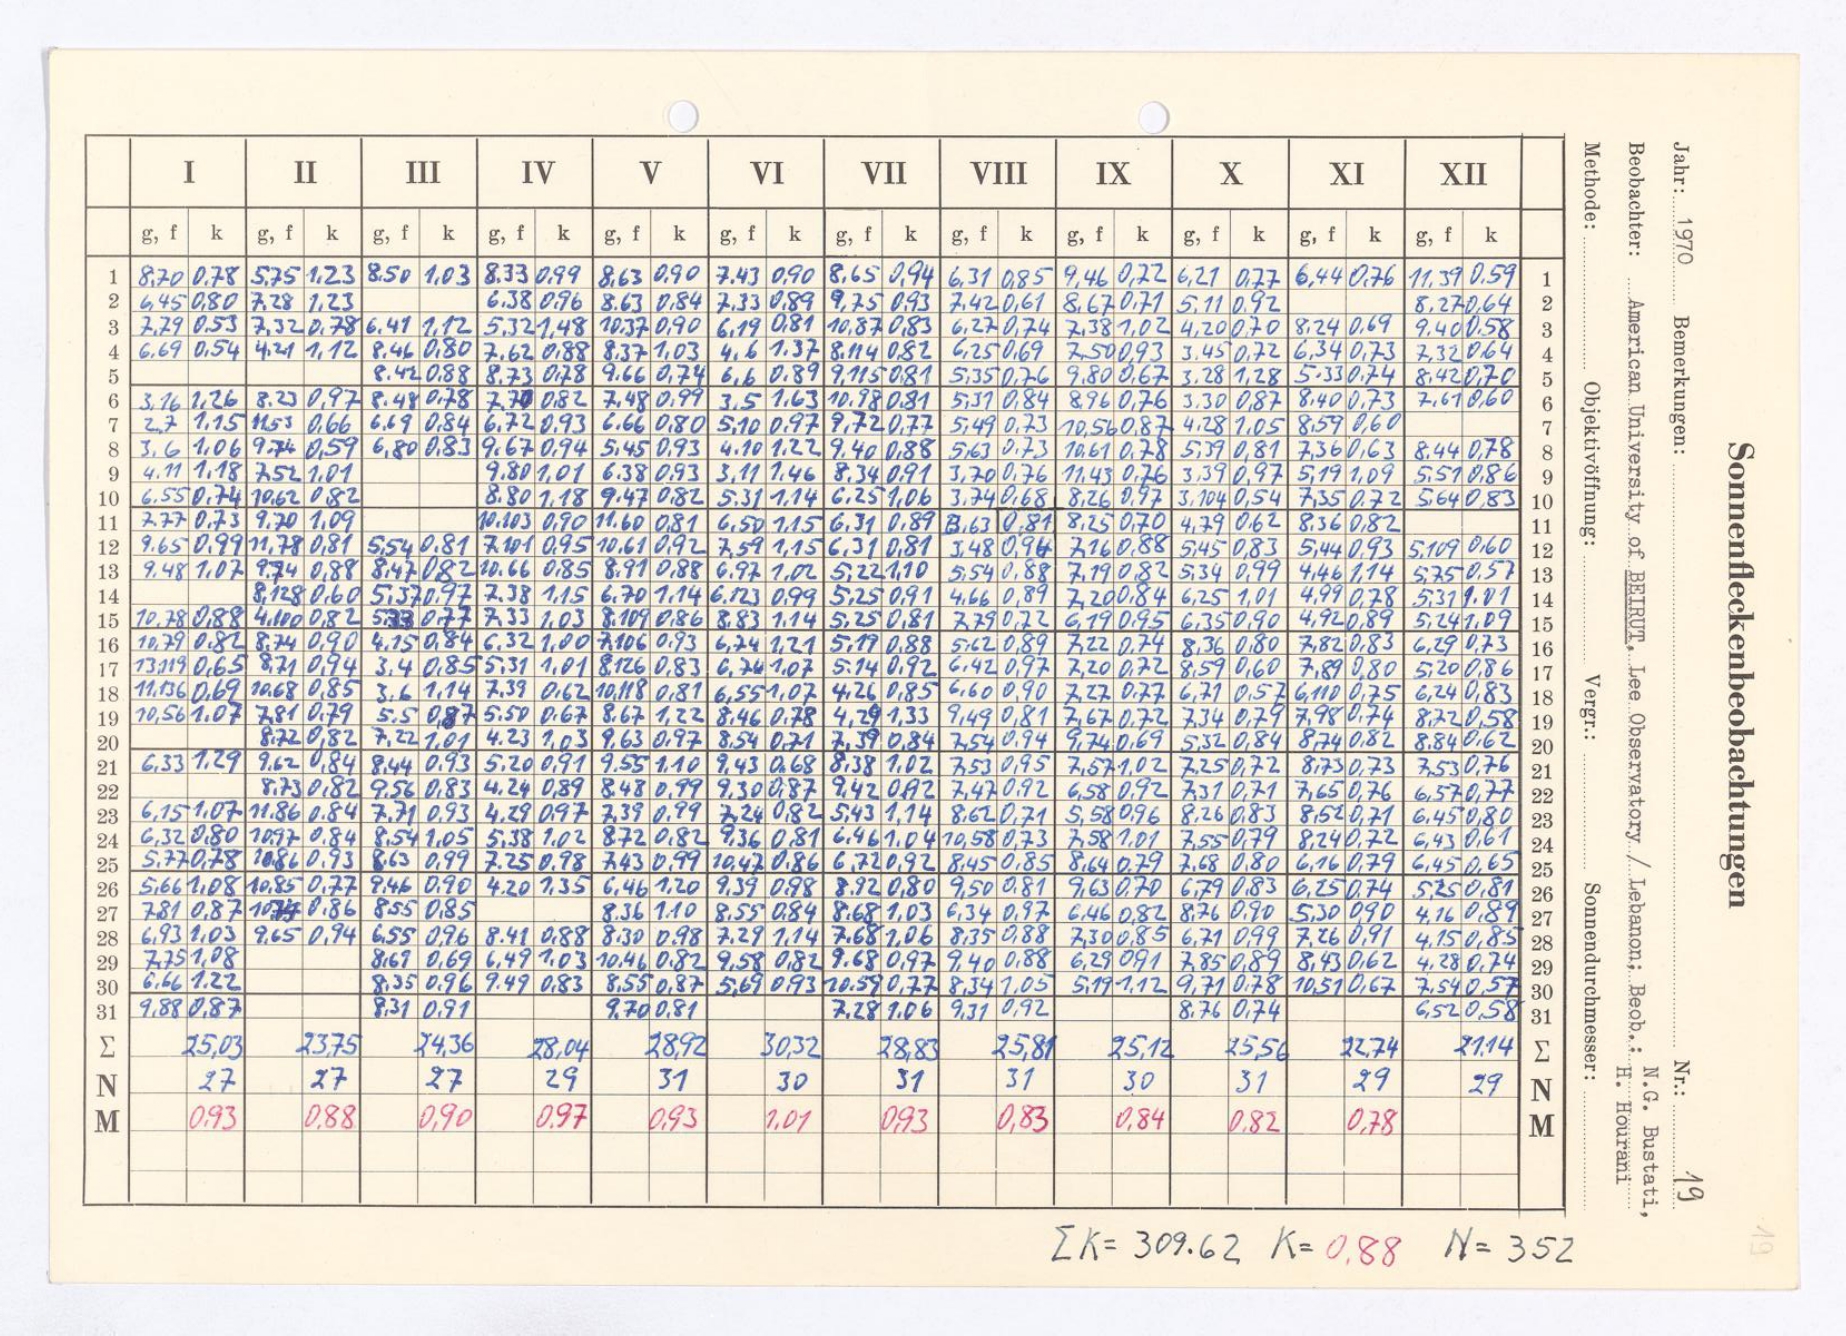 Sonnenfleckenbeobachtungen
Jahr: 1970 Bemerkungen: Nr.: 19
Beobachter: American University of BEIRUT, Lee Observatory / Lebanon; Beob.: N.G. Bustati, H. Hourani
Methode: Objektivöffnung: Vergr.: Sonnendurchmesser:
I II III IV V VI VII VIII IX X XI XII
g, f k g, f k g, f k g, f k g, f k g, f k g, f k g, f k g, f k g, f k g, f k g, f k
1 8,70 0,78 5,75 1,23 8,50 1,03 8,33 0,99 8,63 0,90 7,43 0,90 8,65 0,94 6,31 0,85 9,46 0,72 6,21 0,77 6,44 0,76 11,39 0,59 1
2 6,45 0,80 7,28 1,23 6,38 0,96 8,63 0,84 7,33 0,89 9,75 0,93 7,42 0,61 8,67 0,71 5,11 0,92 8,27 0,64 2
3 7,79 0,53 7,32 0,78 6,41 1,12 5,32 1,48 10,37 0,90 6,19 0,81 10,87 0,83 6,27 0,74 7,38 1,02 4,20 0,70 8,24 0,69 9,40 0,58 3
4 6,69 0,54 4,21 1,12 8,46 0,80 7,62 0,88 8,37 1,03 4,6 1,37 8,114 0,82 6,25 0,69 7,50 0,93 3,45 0,72 6,34 0,73 7,32 0,64 4
5 8,42 0,88 8,73 0,78 9,66 0,74 6,6 0,89 9,115 0,81 5,35 0,76 9,80 0,67 3,28 1,28 5,33 0,74 8,42 0,70 5
6 3,16 1,26 8,23 0,97 8,48 0,78 7,70 0,82 7,48 0,99 3,5 1,63 10,98 0,81 5,31 0,84 8,96 0,76 3,30 0,87 8,40 0,73 7,61 0,60 6
7 2,7 1,15 11,53 0,66 6,69 0,84 6,72 0,93 6,66 0,80 5,10 0,97 9,72 0,77 5,49 0,73 10,56 0,87 4,28 1,05 8,59 0,60 7
8 3,6 1,06 9,74 0,59 6,80 0,83 9,67 0,94 5,45 0,93 4,10 1,22 9,40 0,88 5,63 0,73 10,61 0,78 5,39 0,81 7,36 0,63 8,44 0,78 8
9 4,11 1,18 7,52 1,01 9,80 1,01 6,38 0,93 3,11 1,46 8,34 0,91 3,70 0,76 11,43 0,76 3,39 0,97 5,19 1,09 5,51 0,86 9
10 6,55 0,74 10,62 0,82 8,80 1,18 9,47 0,82 5,31 1,14 6,25 1,06 3,74 0,68 8,26 0,97 3,104 0,54 7,35 0,72 5,64 0,83 10
11 7,77 0,73 9,70 1,09 10,103 0,90 11,60 0,81 6,50 1,15 6,31 0,89 3,63 0,81 8,25 0,70 4,79 0,62 8,36 0,82 11
12 9,65 0,99 11,78 0,81 5,54 0,81 7,101 0,95 10,61 0,92 7,59 1,15 6,31 0,81 3,48 0,94 7,16 0,88 5,45 0,83 5,44 0,93 5,109 0,60 12
13 9,48 1,07 9,74 0,88 8,47 0,82 10,66 0,85 8,91 0,88 6,97 1,02 5,22 1,10 5,54 0,88 7,19 0,82 5,34 0,99 4,46 1,14 5,75 0,57 13
14 8,128 0,60 5,37 0,97 7,38 1,15 6,70 1,14 6,123 0,99 5,25 0,91 4,66 0,89 7,20 0,84 6,25 1,01 4,99 0,78 5,31 1,01 14
15 10,78 0,88 4,100 0,82 0,77 7,33 1,03 8,109 0,86 8,83 1,14 5,25 0,81 7,79 0,72 6,19 0,95 6,35 0,90 4,92 0,89 5,24 1,09 15
16 10,79 0,82 8,74 0,90 4,15 0,84 6,32 1,00 7,106 0,93 6,74 1,21 5,19 0,88 5,62 0,89 7,22 0,74 8,36 0,80 7,82 0,83 6,29 0,73 16
17 13,119 0,65 8,71 0,94 3,4 0,85 5,31 1,01 8,126 0,83 6,74 1,07 5,14 0,92 6,42 0,97 7,20 0,72 8,59 0,60 7,89 0,80 5,20 0,86 17
18 11,136 0,69 10,68 0,85 3,6 1,14 7,39 0,62 10,118 0,81 6,55 1,07 4,26 0,85 6,60 0,90 7,27 0,77 6,71 0,57 6,110 0,75 6,24 0,83 18
19 10,56 1,07 7,81 0,79 5,5 0,87 5,50 0,67 8,67 1,22 8,46 0,78 4,29 1,33 9,49 0,81 7,67 0,72 7,34 0,79 7,98 0,74 8,72 0,58 19
20 8,72 0,82 7,22 1,01 4,23 1,03 9,63 0,97 8,54 0,71 7,39 0,84 7,54 0,94 9,74 0,69 5,32 0,84 8,74 0,82 8,84 0,62 20
21 6,33 1,29 9,62 0,84 8,44 0,93 5,20 0,91 9,55 1,10 9,43 0,68 8,38 1,02 7,53 0,95 7,57 1,02 7,25 0,72 8,73 0,73 7,53 0,76 21
22 8,73 0,82 9,56 0,83 4,24 0,89 8,48 0,99 9,30 0,87 9,42 0,92 7,47 0,92 6,58 0,92 7,31 0,71 7,65 0,76 6,57 0,77 22
23 6,15 1,07 11,86 0,84 7,71 0,93 4,29 0,97 7,39 0,99 7,24 0,82 5,43 1,14 8,62 0,71 5,58 0,96 8,26 0,83 8,52 0,71 6,45 0,80 23
24 6,32 0,80 10,97 0,84 8,54 1,05 5,38 1,02 8,72 0,82 9,36 0,81 6,46 1,04 10,58 0,73 7,58 1,01 7,55 0,79 8,24 0,72 6,43 0,61 24
25 5,77 0,78 10,86 0,93 8,63 0,99 7,25 0,98 7,43 0,99 10,47 0,86 6,72 0,92 8,45 0,85 8,64 0,79 7,68 0,80 6,16 0,79 6,45 0,65 25
26 5,66 1,08 10,85 0,77 9,46 0,90 4,20 1,35 6,46 1,20 9,39 0,98 8,92 0,80 9,50 0,81 9,63 0,70 6,79 0,83 6,25 0,74 5,25 0,81 26
27 7,81 0,87 0,86 8,55 0,85 8,36 1,10 8,55 0,84 8,68 1,03 6,34 0,97 6,46 0,82 8,76 0,90 5,30 0,90 4,16 0,89 27
28 6,93 1,03 9,65 0,94 6,55 0,96 8,41 0,88 8,30 0,98 7,29 1,14 7,68 1,06 8,35 0,88 7,30 0,85 6,71 0,99 7,26 0,91 4,15 0,85 28
29 7,75 1,08 8,69 0,69 6,49 1,03 10,46 0,82 9,58 0,82 9,68 0,97 9,40 0,88 6,29 0,91 7,85 0,89 8,43 0,62 4,28 0,74 29
30 6,66 1,22 8,35 0,96 9,49 0,83 8,55 0,87 5,69 0,93 10,59 0,77 8,34 1,05 5,19 1,12 9,71 0,78 10,51 0,67 7,54 0,57 30
31 9,88 0,87 8,31 0,91 9,70 0,81 7,28 1,06 9,31 0,92 8,76 0,74 6,52 0,58 31
Σ 25,03 23,75 24,36 28,04 28,92 30,32 28,83 25,81 25,12 25,56 22,74 21,14 Σ
N 27 27 27 29 31 30 31 31 30 31 29 29 N
M 0,93 0,88 0,90 0,97 0,93 1,01 0,93 0,83 0,84 0,82 0,78 M
ΣK= 309.62 K= 0,88 N= 352
19